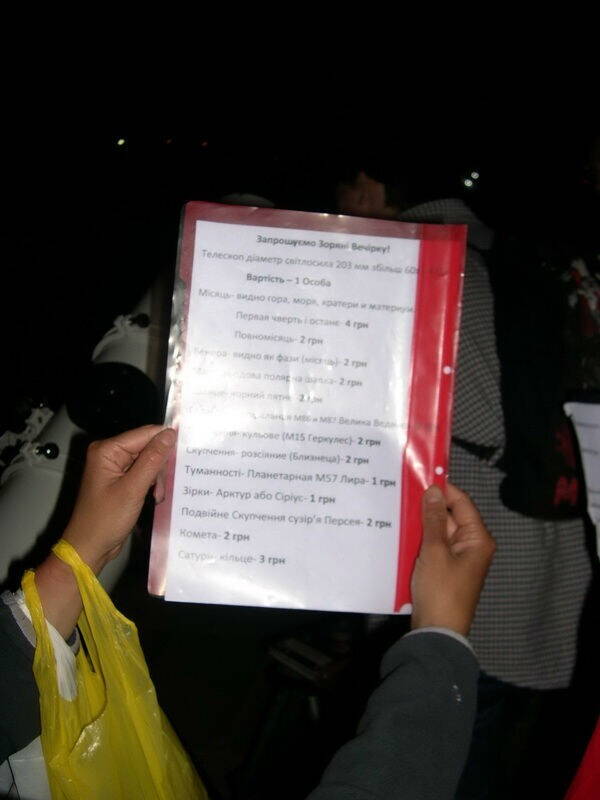 Запрошуємо Зоряні Вечірку!
Телескоп діаметр світлосила 203 мм збільш 60
Вартість – 1 Особа
Місяць- видно гора, моря, кратери и материки
Первая чверть і останє- 4 грн
Повномісяць- 2 грн
видно як фази (місяць)- 2 грн
полярна шапка- 2 грн
чорний пятно- 2 грн
М86 и М87 Велика
кульове (М15 Геркулес)- 2 грн
Скупчення- розсіяние (Близнеца)- 2 грн
Туманності- Планетарная М57 Лира- 1 грн
Зірки- Арктур або Сіріус- 1 грн
Подвійне Скупчення сузір'я Персея- 2 грн
Комета- 2 грн
Сатурн- кільце- 3 грн